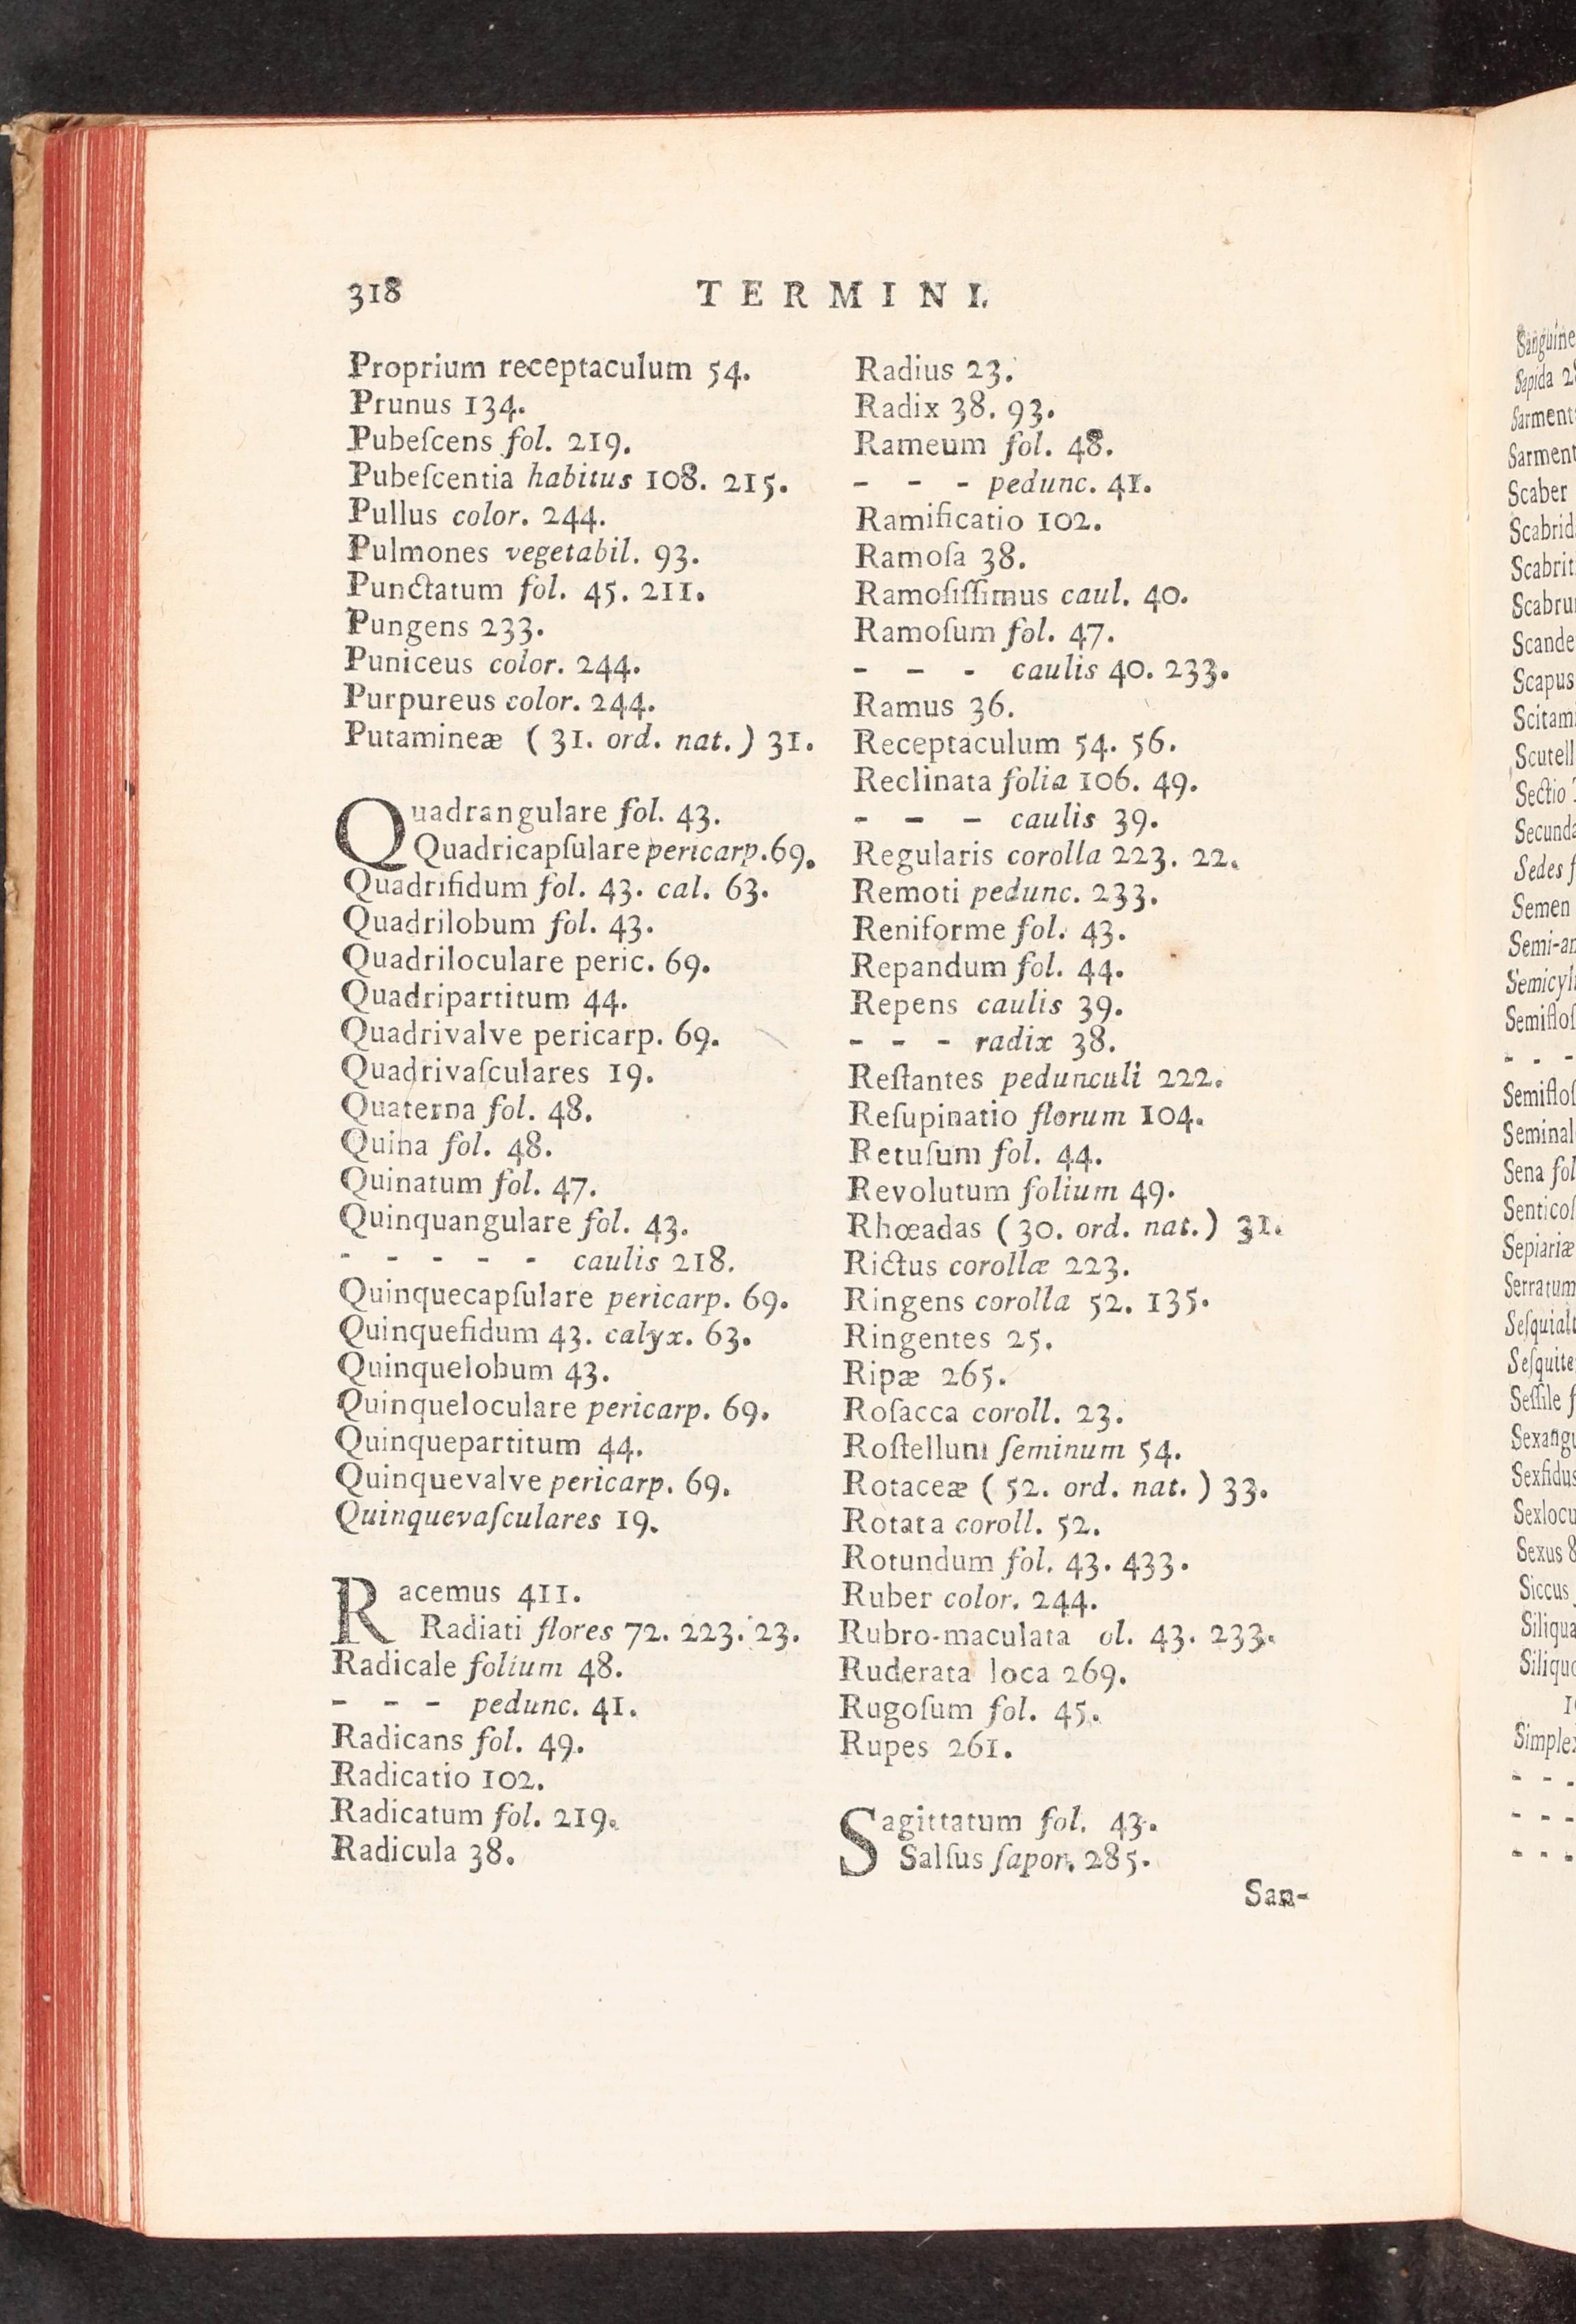 318 TERMINI.
Proprium receptaculum 54.
Prunus 134.
Pubeſcens fol. 219.
Pubeſcentia habitus 108. 215.
Pullus color. 244.
Pulmones vegetabil. 93.
Punctatum fol. 45. 211.
Pungens 233.
Puniceus color. 244.
Purpureus color. 244.
Putamineæ ( 31. ord. nat. ) 31.
Quadrangulare fol. 43.
Quadricapſulare pericarp. 69.
Quadrifidum fol. 43. cal. 63.
Quadrilobum fol. 43.
Quadriloculare peric. 69.
Quadripartitum 44.
Quadrivalve pericarp. 69.
Quadrivaſculares 19.
Quaterna fol. 48.
Quina fol. 48.
Quinatum fol. 47.
Quinquangulare fol. 43.
- - - - - caulis 218.
Quinquecapſulare pericarp. 69.
Quinquefidum 43. calyx. 63.
Quinquelobum 43.
Quinqueloculare pericarp. 69.
Quinquepartitum 44.
Quinquevalve pericarp. 69.
Quinquevaſculares 19.
Racemus 411.
Radiati flores 72. 223. 23.
Radicale folium 48.
- - - pedunc. 41.
Radicans fol. 49.
Radicatio 102.
Radicatum fol. 219.
Radicula 38.
Radius 23.
Radix 38. 93.
Rameum fol. 48.
- - - pedunc. 41.
Ramificatio 102.
Ramoſa 38.
Ramoſiſſimus caul. 40.
Ramoſum fol. 47.
- - - caulis 40. 233.
Ramus 36.
Receptaculum 54. 56.
Reclinata folia 106. 49.
- - - caulis 39.
Regularis corolla 223. 22.
Remoti pedunc. 233.
Reniforme fol. 43.
Repandum fol. 44.
Repens caulis 39.
- - - radix 38.
Reſtantes pedunculi 222.
Reſupinatio florum 104.
Retuſum fol. 44.
Revolutum folium 49.
Rhœadas ( 30. ord. nat. ) 31.
Rictus corollæ 223.
Ringens corolla 52. 135.
Ringentes 25.
Ripæ 265.
Roſacca coroll. 23.
Roſtellum ſeminum 54.
Rotaceæ ( 52. ord. nat. ) 33.
Rotata coroll. 52.
Rotundum fol. 43. 433.
Ruber color. 244.
Rubro-maculata ol. 43. 233.
Ruderata loca 269.
Rugoſum fol. 45.
Rupes 261.
Sagittatum fol. 43.
Salſus ſapor. 285.
San-
Sanguine
Sapida 2
Sarment
Sarment
Scaber
Scabrid
Scabrit
Scabru
Scande
Scapus
Scitam
Scutell
Sectio
Secunda
Sedes f
Semen
Semi-an
Semicyl
Semifloſ
- - -
Semifloſ
Seminal
Sena fol
Senticoſ
Sepiariæ
Serratum
Seſquialt
Seſquite
Seſſile f
Sexangu
Sexfidus
Sexlocu
Sexus 8
Siccus
Siliqua
Siliquo
Simplex
- - -
- - -
- - -